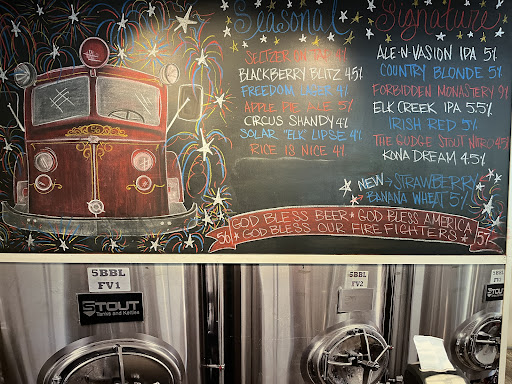 Seasonal
SELTZER ON TAP 4%
BLACKBERRY BLITZ 4.5%
FREEDOM LAGER 4%
APPLE PIE ALE 5%
CIRCUS SHANDY 4%
SOLAR "ELK" LIPSE 4%
RICE IS NICE 4%
Signature
ALE-N-VASION IPA 5%
COUNTRY BLONDE 5%
FORBIDDEN MONASTERY 9%
ELK CREEK IPA 5.5%
IRISH RED 5%
THE GUDGE STOUT NITRO 4%
KONA DREAM 4.5%
NEW → STRAWBERRY
BANANA WHEAT 5%
56 GOD BLESS BEER ★ GOD BLESS AMERICA
★ GOD BLESS OUR FIREFIGHTERS ★ 57
5BBL
FV1
STOUT
Tanks and Kettles
5BBL
FV2
5BBL
STOUT